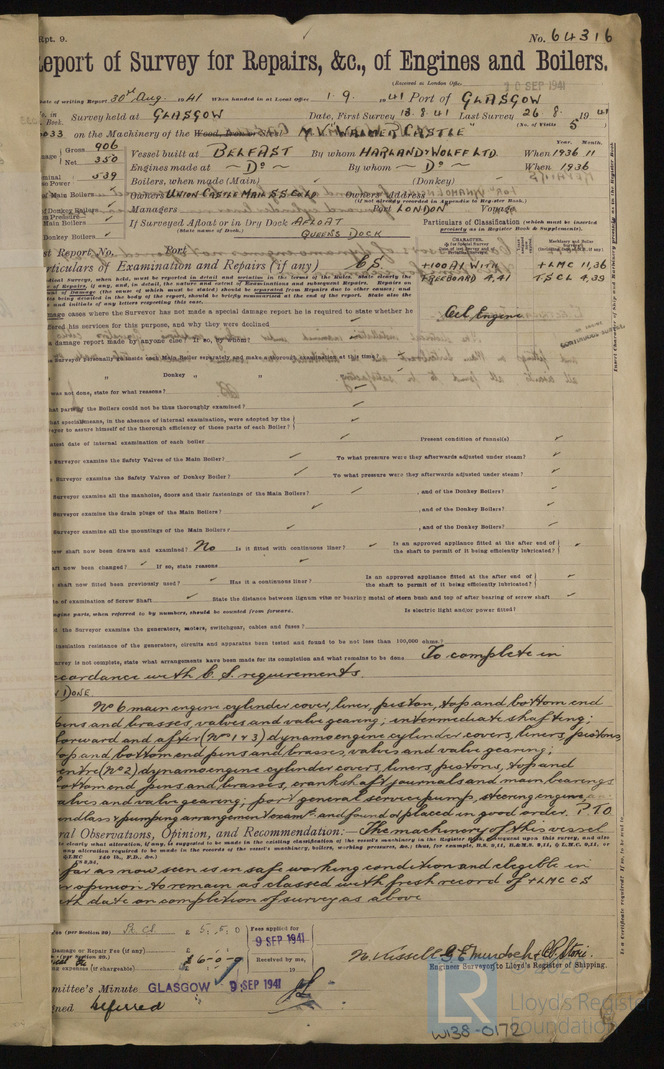 Rpt. 9.
No. 64316
Report of Survey for Repairs, &c., of Engines and Boilers.
(Received at London Office 10 SEP 1941
Date of writing Report 30th Aug 1941 When handed in at Local Office 1.9.1941 Port of GLASGOW
Survey held at GLASGOW Date, First Survey 13.8.41 Last Survey 26.8.1941
(No. of Visits 5)
on the Machinery of the Wood, Iron or Steel M.V. "WALMER CASTLE"
Gross 906
Net 350
Vessel built at BELFAST By whom HARLAND & WOLFF LTD. When 1936 11
Year. Month.
539
Engines made at Do By whom Do When 1936
Boilers, when made (Main) (Donkey)
Owners UNION CASTLE MAIL S.S. Co Ld Owners' Address
(if not already recorded in Appendix to Register Book.)
Managers Port LONDON Voyage
If Surveyed Afloat or in Dry Dock AFLOAT
(State name of Dock.) QUEENS DOCK
Particulars of Classification (which must be inserted precisely as in Register Book & Supplements).
Last Report No. Port
Particulars of Examination and Repairs (if any) CS
+100A1 WITH
FREEBOARD 4.41
+LMC 11,36
TSCL 4.39
Oil Engine
CONTINUOUS SURVEY
damage cases where the Surveyor has not made a special damage report he is required to state whether he
offered his services for this purpose, and why they were declined
damage report made by anyone else? If so, by whom?
Surveyor personally go inside each Main Boiler separately and make a thorough examination at this time?
" " Donkey " "
was not done, state for what reasons?
What parts of the Boilers could not be thus thoroughly examined?
What special means, in the absence of internal examination, were adopted by the
Surveyor to assure himself of the thorough efficiency of those parts of each Boiler?
latest date of internal examination of each boiler Present condition of funnel(s)
Surveyor examine the Safety Valves of the Main Boiler? To what pressure were they afterwards adjusted under steam?
Surveyor examine the Safety Valves of Donkey Boiler? To what pressure were they afterwards adjusted under steam?
Surveyor examine all the manholes, doors and their fastenings of the Main Boilers? , and of the Donkey Boilers?
Surveyor examine the drain plugs of the Main Boilers? , and of the Donkey Boilers?
Surveyor examine all the mountings of the Main Boilers? , and of the Donkey Boilers?
screw shaft now been drawn and examined? No Is it fitted with continuous liner? Is an approved appliance fitted at the after end of the shaft to permit of it being efficiently lubricated?
shaft now been changed? If so, state reasons
shaft now fitted been previously used? Has it a continuous liner? Is an approved appliance fitted at the after end of the shaft to permit of it being efficiently lubricated?
date of examination of Screw Shaft State the distance between lignum vitæ or bearing metal of stern bush and top of after bearing of screw shaft
engine parts, when referred to by numbers, should be counted from forward. Is electric light and/or power fitted?
the Surveyor examine the generators, motors, switchgear, cables and fuses?
insulation resistance of the generators, circuits and apparatus been tested and found to be not less than 100,000 ohms?
survey is not complete, state what arrangements have been made for its completion and what remains to be done To complete in
accordance with C.S. requirements.
DONE
No 6 main engine cylinder cover, liner, piston, top and bottom end
pins and brasses, valves and valve gearing; intermediate shafting;
forward and after (Nos 1 & 3) dynamo engine cylinder covers, liners, pistons,
top and bottom end pins and brasses, valves and valve gearing;
centre (No 2) dynamo engine cylinder covers, liners, pistons, top and
bottom end pins and brasses, crankshaft journals and main bearings
valves and valve gearing; port general service pump, steering engine,
windlass & pumping arrangements examd. and found or placed in good order. P.T.O
General Observations, Opinion, and Recommendation:— The machinery of this vessel
so far as now seen is in safe working condition and elegible in
our opinion to remain as classed with fresh record of +LMC CS
with date on completion of survey as above
£ 5.5.0
Fees applied for
9 SEP 1941
Damage or Repair Fee (if any)
£6-0-0
Received by me,
Engineer Surveyor to Lloyd's Register of Shipping.
Committee's Minute GLASGOW 9 SEP 1941
Deferred
LR
Lloyd's Register
Foundation
W138-0172